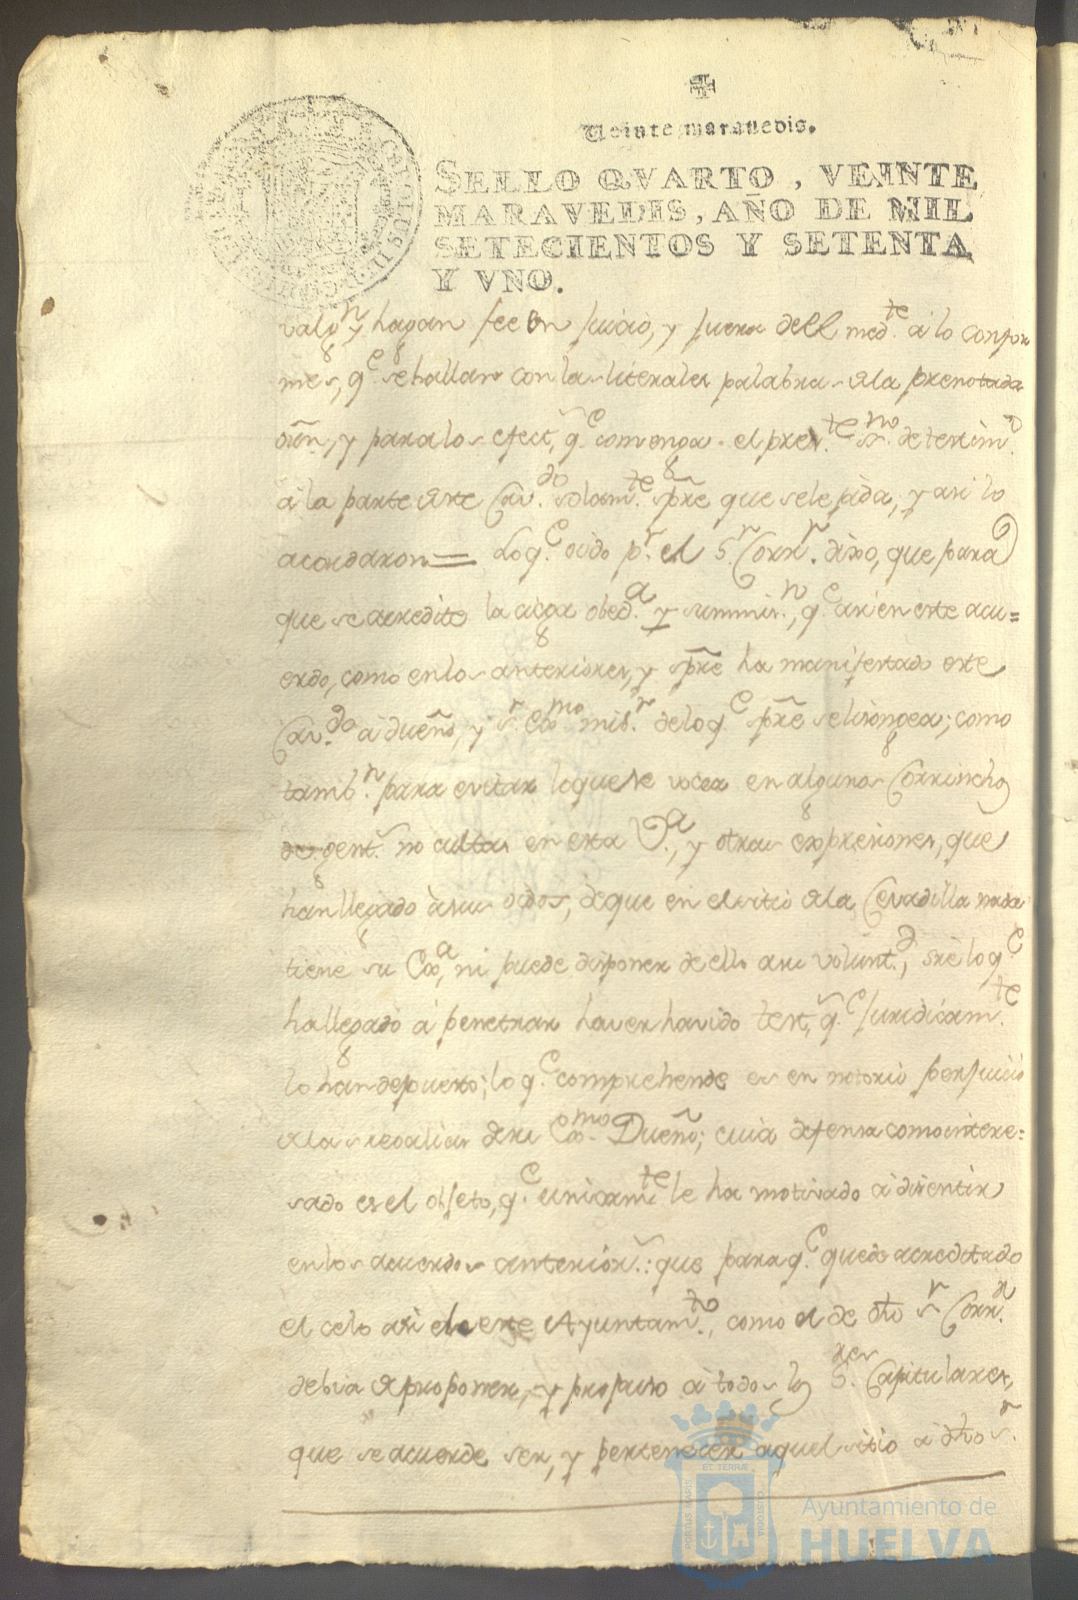 Veinte maravedis.
SELLO QVARTO, VEINTE
MARAVEDIS, AÑO DE MIL
SETECIENTOS Y SETENTA
Y VNO.
valgn. y hagan fee en juicio, y fuera dell medte. a lo confor
mes, qe. se hallan con las literales palabras dela prenotada
orn, y para los efect.s qe. convenga el preste. ssno. de testimo.
à la parte deste Cavdo. solamte. spre que sele pida, y asi lo
acordaron= Lo qe. oido pr. el Sr. Corrr. dixo, que para
que se acredite la ciega obeda. y summisn., qe. asi en este acu=
erdo, como en los anteriores, y spre ha manifestado este
Cavdo. a dueño, y sr. Exmo. mio. de lo qe. spre se lisongea; como
tambn. para evitar loque se vocea en algunos Corrinchos
de gent.s no cultas en esta Va., y otras expresiones, que
han llegado à sus oidos, de que en el sitio dela Cevadilla nada
tiene su Exa., ni puede disponer de ello a su voluntd., sre lo qe.
ha llegado à penetrar haver havido test.s, qe. juridicamte.
lo han depuesto; lo qe. comprehende es en notorio perjuicio
delas regalias de su Exmo. Dueño; cuia defensa como intere=
sado es el objeto, qe. unicamte. le ha motivado a disentir
en los acuerdos anterior.s: que para qe. quede acreditado
el celo asi de este Ayuntamto., como el de dho sr. Corrr.
debia de proponer, y propuso à todos los Sres. Capitulares,
que se acuerde ser, y pertenecer aquel sitio a dho sr.
PORTUS MARIS
ET TERRÆ
CUSTODIA
Ayuntamiento de
HUELVA